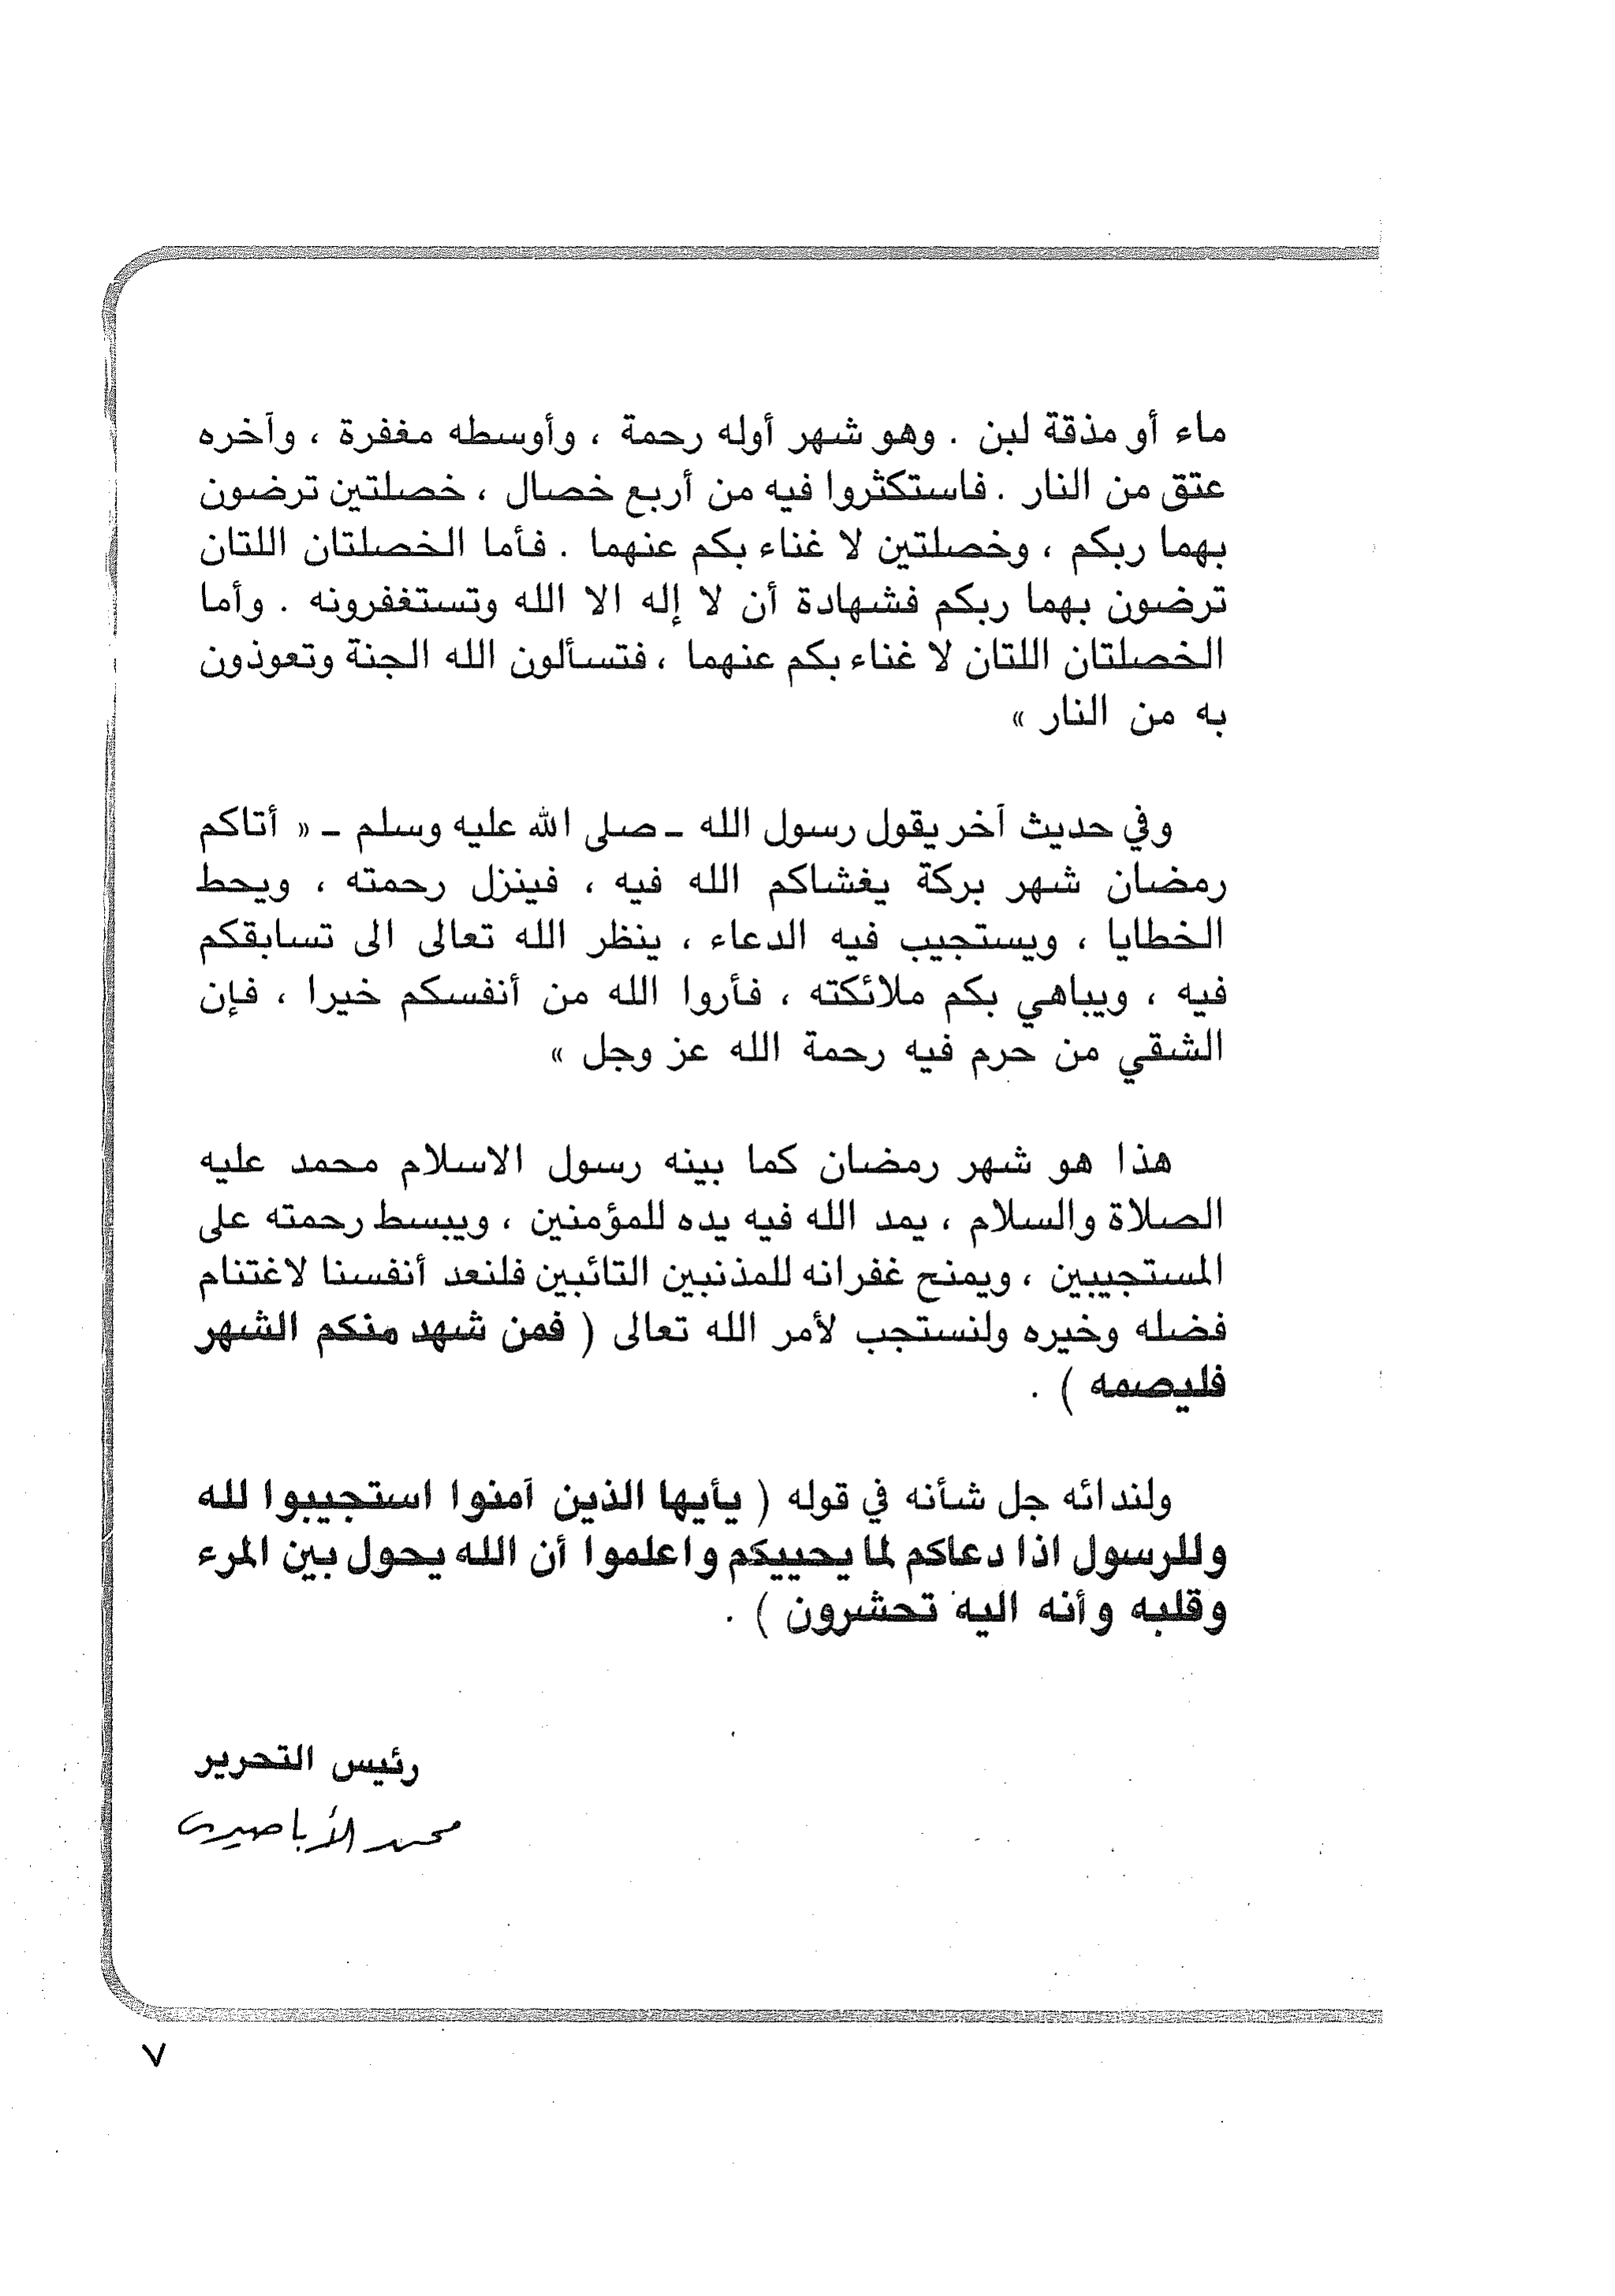 ماء أو مذقة لبن . وهو شهر أوله رحمة ، وأوسطه مغفرة ، وآخره
عتق من النار . فاستكثروا فيه من أربع خصال ، خصلتين ترضون
بهما ربكم ، وخصلتين لا غناء بكم عنهما . فأما الخصلتان اللتان
ترضون بهما ربكم فشهادة أن لا إله الا الله وتستغفرونه . وأما
الخصلتان اللتان لا غناء بكم عنهما ، فتسألون الله الجنة وتعوذون
به من النار »
وفي حديث آخر يقول رسول الله ـ صلى الله عليه وسلم ـ « أتاكم
رمضان شهر بركة يغشاكم الله فيه ، فينزل رحمته ، ويحط
الخطايا ، ويستجيب فيه الدعاء ، ينظر الله تعالى الى تسابقكم
فيه ، ويباهي بكم ملائكته ، فأروا الله من أنفسكم خيرا ، فإن
الشقي من حرم فيه رحمة الله عز وجل »
هذا هو شهر رمضان كما بينه رسول الاسلام محمد عليه
الصلاة والسلام ، يمد الله فيه يده للمؤمنين ، ويبسط رحمته على
المستجيبين ، ويمنح غفرانه للمذنبين التائبين فلنعد أنفسنا لاغتنام
فضله وخيره ولنستجب لأمر الله تعالى ( فمن شهد منكم الشهر
فليصمه ) .
ولندائه جل شأنه في قوله ( يأيها الذين آمنوا استجيبوا لله
وللرسول اذا دعاكم لما يحييكم واعلموا أن الله يحول بين المرء
وقلبه وأنه اليه تحشرون ) .
رئيس التحرير
محمد الأباصيرى
٧